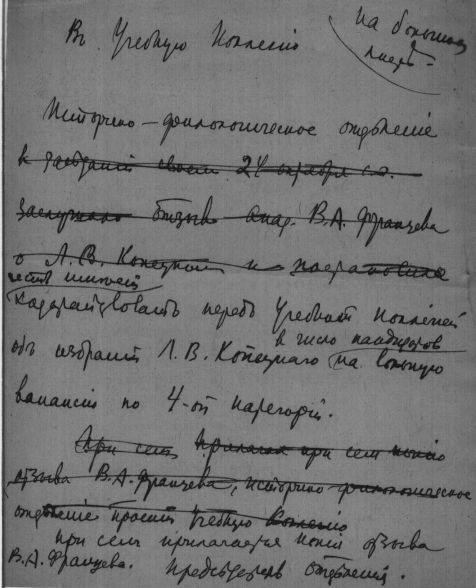 Въ Учебную Коллегію
на большомъ
листѣ.
Историко-филологическое отдѣленіе
въ засѣданіи своемъ 24 октября с.г.
заслушало отзывъ акад. В.А. Францева
о Л.В. Копецкомъ и постановило
честь имѣетъ
ходатайствовать передъ Учебной Коллегіей
въ число кандидатовъ
объ избраніи Л.В. Копецкаго на вольную
вакансію по 4-ой категоріи.
При семъ прилагая при семъ копію
отзыва В.А. Францева, историко-филологическое
отдѣленіе проситъ Учебную Коллегію
При семъ прилагается копія отзыва
В.А. Францева. Предсѣдатель отдѣленія.